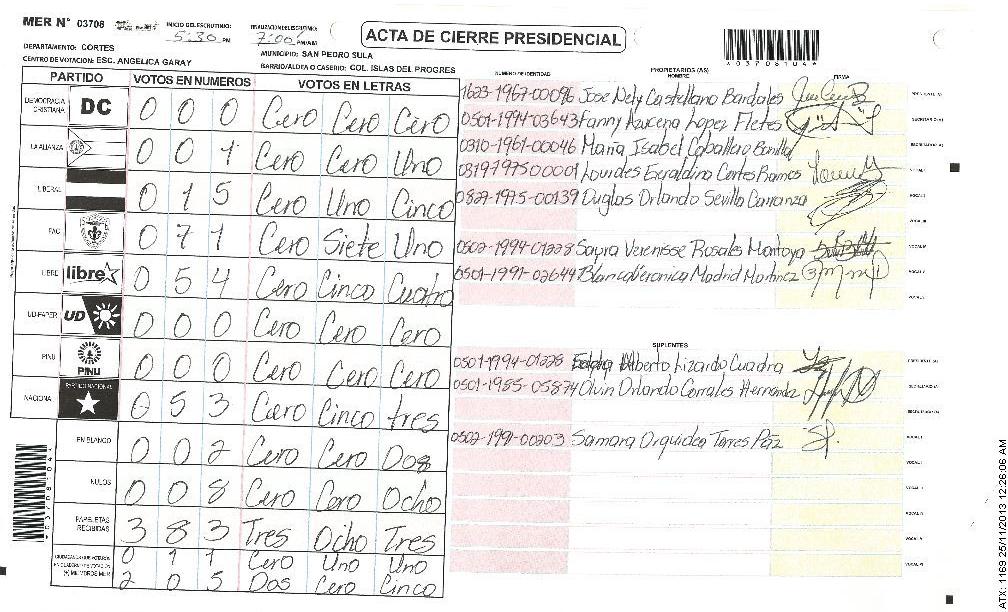 MER N° 03708
INICIO DEL ESCRUTINIO: 5:30 PM
FINALIZACION DEL ESCRUTINIO: 7:00 PM/AM
ACTA DE CIERRE PRESIDENCIAL
*03708104*
DEPARTAMENTO: CORTES
MUNICIPIO: SAN PEDRO SULA
CENTRO DE VOTACION: ESC. ANGELICA GARAY
BARRIO/ALDEA O CASERIO: COL. ISLAS DEL PROGRES
PARTIDO VOTOS EN NUMEROS VOTOS EN LETRAS
DEMOCRACIA CRISTIANA DC 0 0 0 Cero Cero Cero
LA ALIANZA 0 0 1 Cero Cero Uno
LIBERAL 0 1 5 Cero Uno Cinco
PAC 0 7 1 Cero Siete Uno
LIBRE libre 0 5 4 Cero Cinco Cuatro
UD-FAPER UD 0 0 0 Cero Cero Cero
PINU PINU 0 0 0 Cero Cero Cero
NACIONAL PARTIDO NACIONAL 0 5 3 Cero Cinco tres
EN BLANCO 0 0 2 Cero Cero Dos
NULOS 0 0 8 Cero Cero Ocho
PAPELETAS RECIBIDAS 3 8 3 Tres Ocho Tres
0 1 1 Cero Uno Uno
(+) MIEMBROS MER 2 0 5 Dos Cero Cinco
NUMERO DE IDENTIDAD PROPIETARIOS (AS) NOMBRE FIRMA
1623-1967-00096 Jose Nely Castellano Bardales PRESIDENTE (A)
0501-1994-03643 Fanny Azucena Lopez Fletes SECRETARIO (A)
0310-1961-00046 Maria Isabel Caballero Bonilla ESCRUTADOR (A)
0319797500001 Lourdes Geraldina Cortes Ramos VOCAL I
0827-1975-00139 Duglas Orlando Sevilla Carranza VOCAL II
VOCAL III
0502-1994-01228 Sayra Verenisse Rosales Montoya VOCAL IV
0501-1991-02644 Blanca Veronica Madrid Martinez VOCAL V
VOCAL VI
SUPLENTES
0501-1994-01228 Alberto Lizardo Cuadra PRESIDENTE (A)
0501-1985-05874 Olvin Orlando Corrales Hernandez SECRETARIO (A)
ESCRUTADOR (A)
0502-1991-00203 Samara Orquidea Torres Paz VOCAL I
VOCAL II
VOCAL III
VOCAL IV
VOCAL V
VOCAL VI
*03708104*
ATX: 1169 25/11/2013 12:26:06 AM